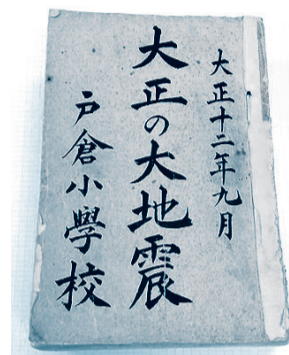 大正十二年九月
大正の大地震
戸倉小學校